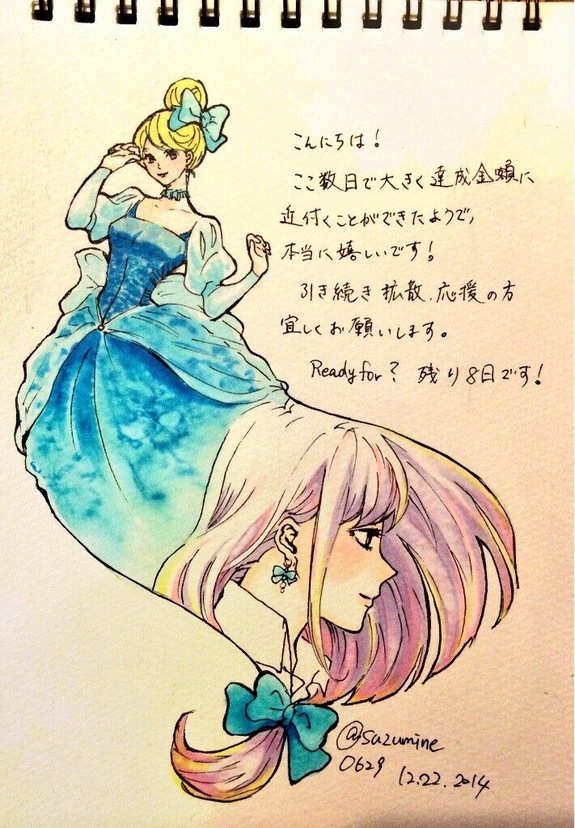 こんにちは!
ここ数日で大きく達成金額に
近付くことができたようで,
本当に嬉しいです!
引き続き拡散.応援の方
宜しくお願いします。
Readyfor? 残り8日です!
@suzumine
0629
12.22.2014